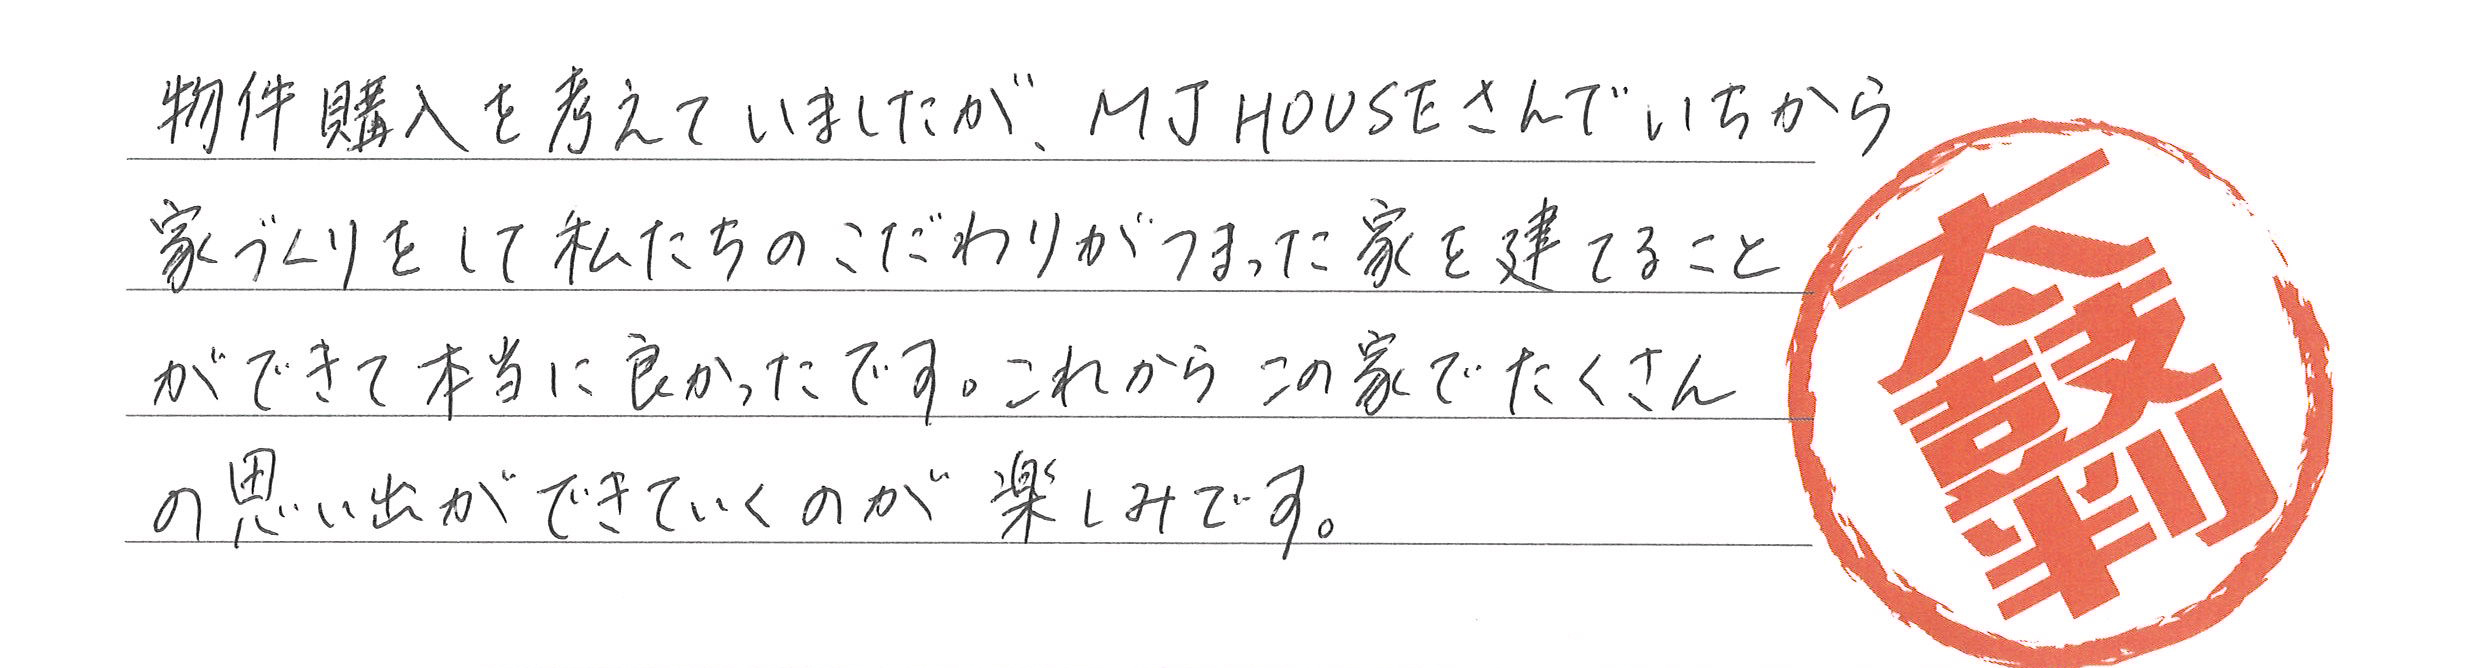 物件購入を考えていましたが、MJ HOUSEさんでいちから
家づくりをして私たちのこだわりがつまった家を建てること
ができて本当に良かったです。これからこの家でたくさん
の思い出ができていくのが楽しみです。
太鼓判